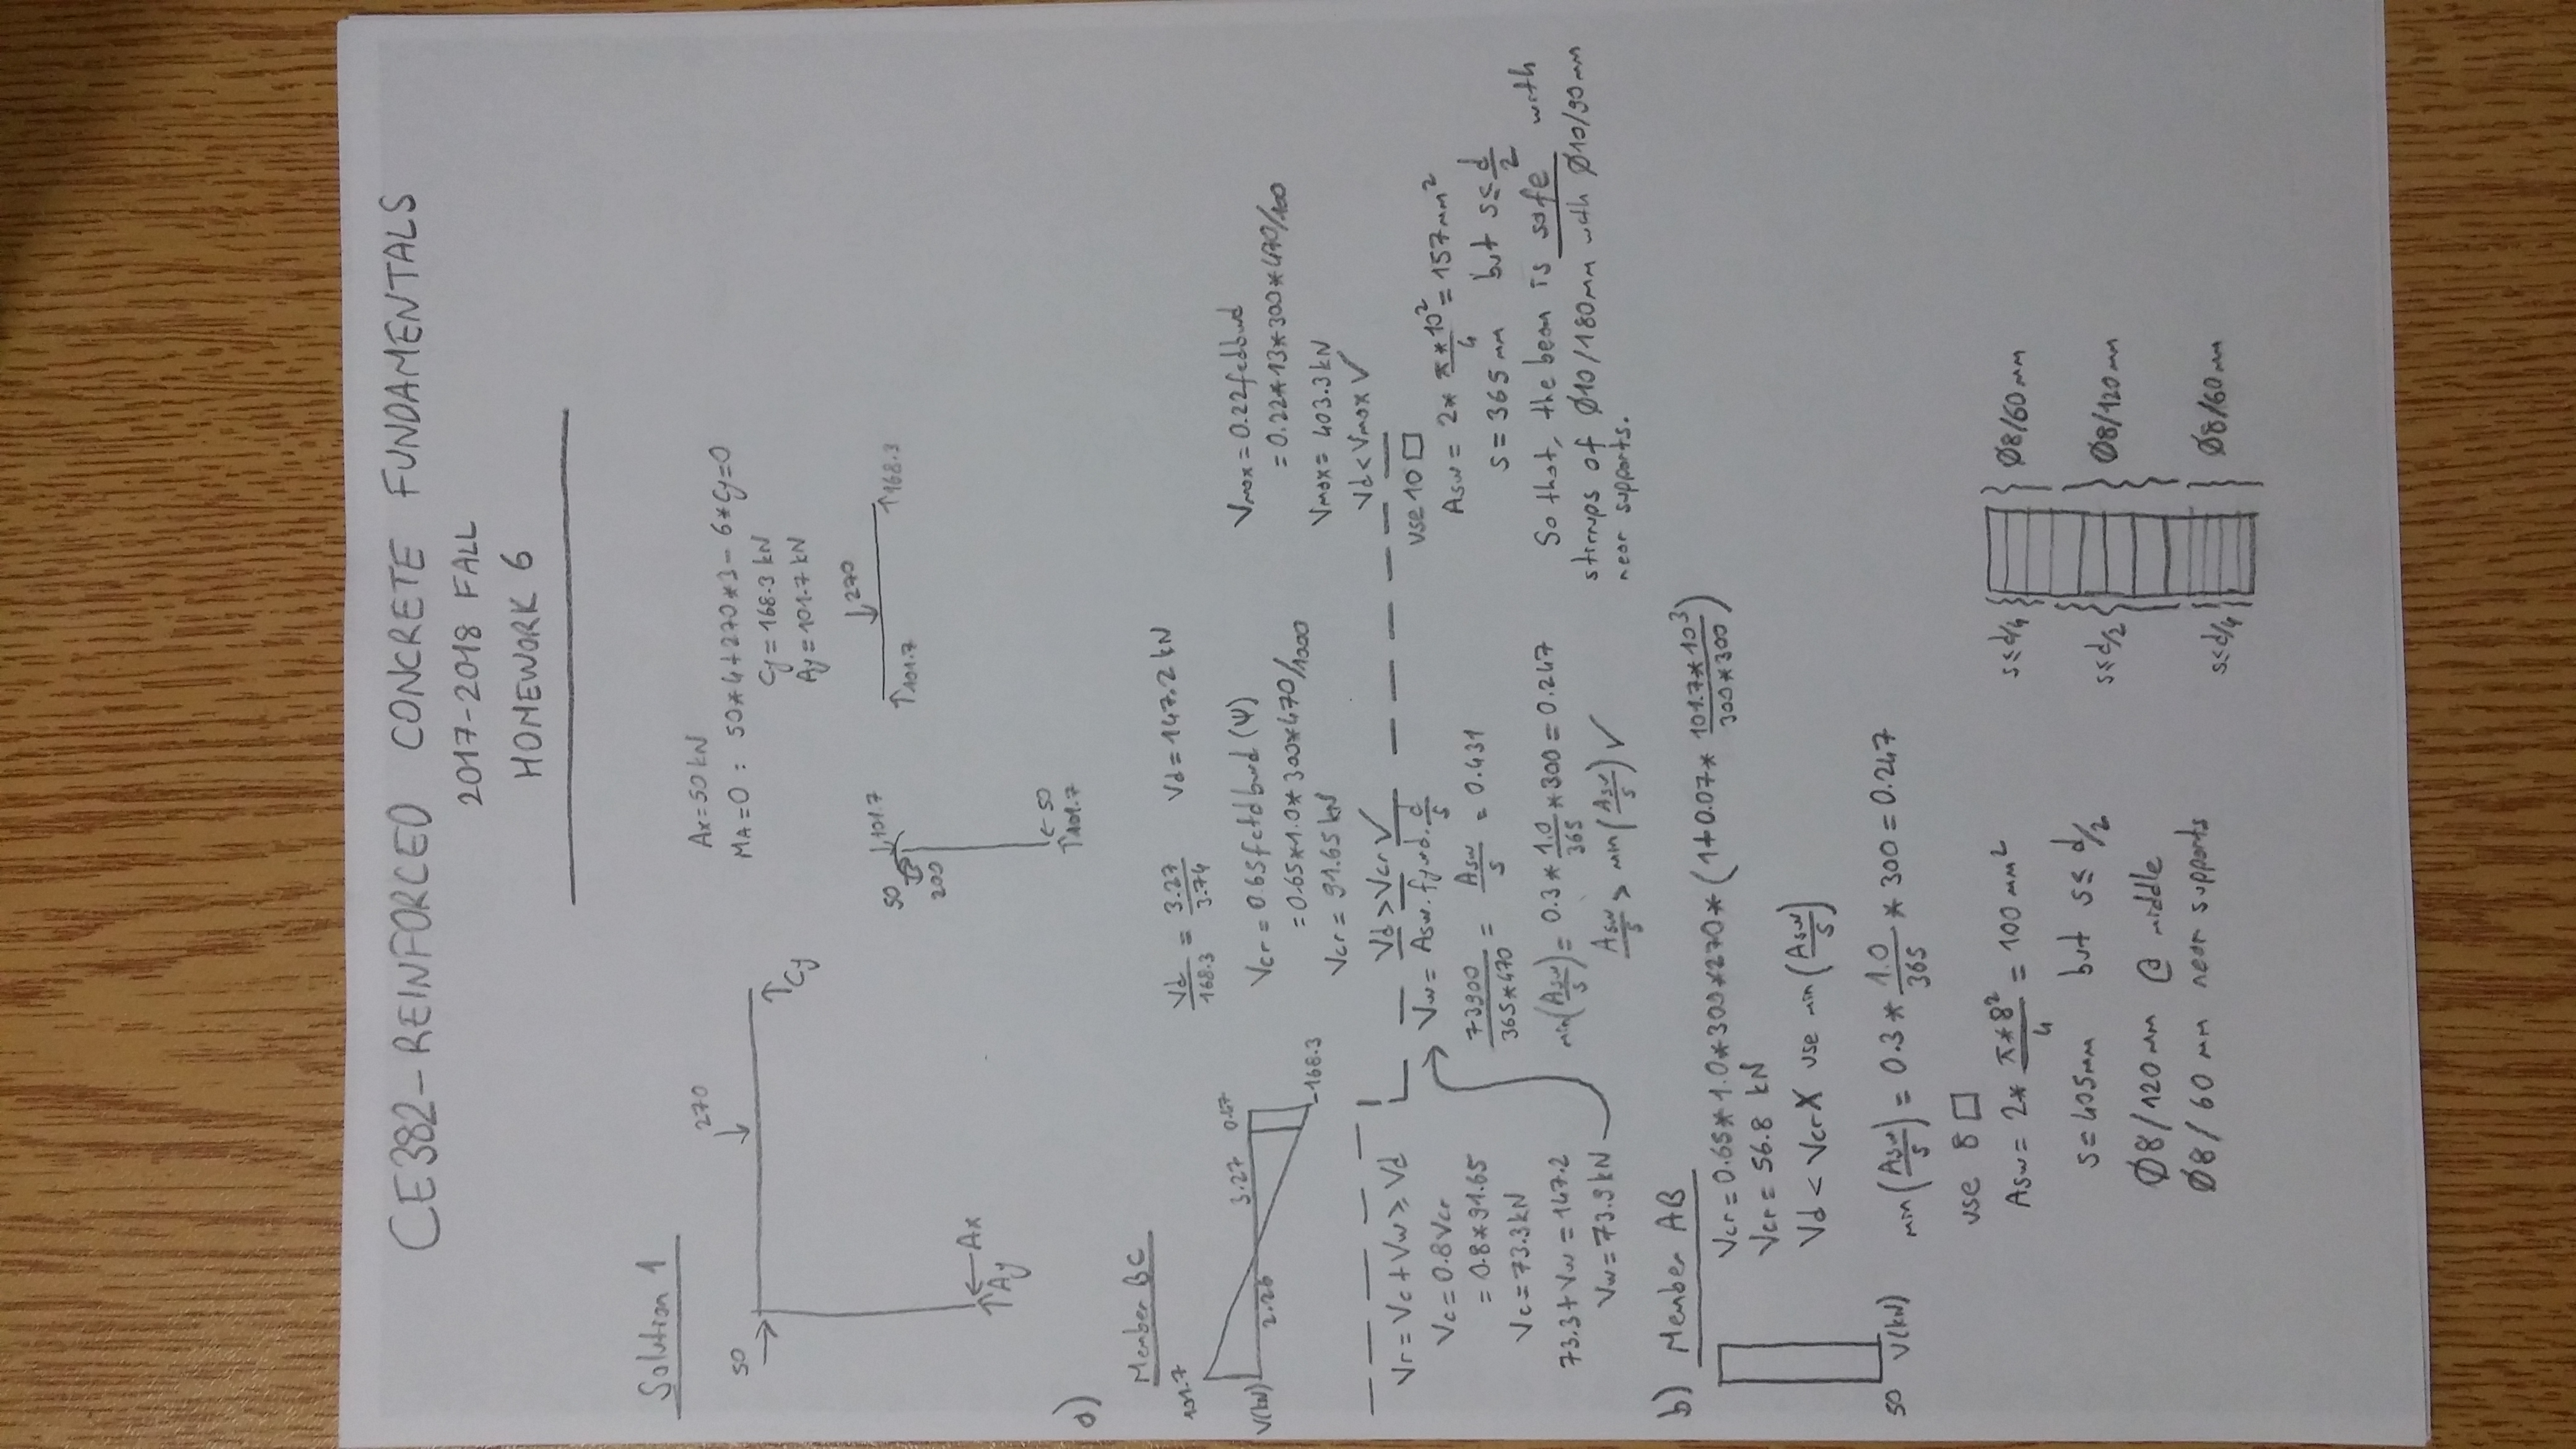 CE382-REINFORCED CONCRETE FUNDAMENTALS
2017-2018 FALL
HOMEWORK 6
Solution 1
270
50
Cy
Ax
Ay
Ax=50 kN
MA=0 : 50*4+270*3-6*Cy=0
Cy=168.3 kN
Ay=101.7 kN
101.7
50
200
50
101.7
270
101.7
168.3
a)
Member BC
101.7
V(kN)
2.26
3.27
-168.3
Vd/168.3 = 3.27/3.74 Vd=147.2 kN
Vcr = 0.65fctdbwd (Ψ)
= 0.65*1.0*300*470/1000
Vcr = 91.65 kN
Vd>Vcr ✓
Vmax = 0.22fcdbwd
= 0.22*13*300*470/100
Vmax = 403.3 kN
Vd<Vmax ✓
Vr=Vc+Vw≥Vd
Vc=0.8Vcr
=0.8*91.65
Vc=73.3kN
73.3+Vw=147.2
Vw=73.9kN
Vw= Asw.fywd.d/s
73900/365*470 = Asw/s = 0.431
min(Asw/s)= 0.3*1.0/365*300=0.247
Asw/s > min(Asw/s) ✓
use 10 □
Asw= 2*π*10²/4 = 157mm²
s=365 mm but s≤d/2
So that, the beam is safe with
stirrups of Ø10/180mm with Ø10/90mm
near supports.
b) Member AB
50 V(kN)
Vcr=0.65*1.0*300*270*(1+0.07*101.7*10³/300*300)
Vcr= 56.8 kN
Vd < Vcr X use min(Asw/s)
min(Asw/s) = 0.3*1.0/365*300=0.247
use 8 □
Asw= 2*π*8²/4 = 100 mm²
s=405mm but s≤d/2
Ø8/120 mm @ middle
Ø8/60 mm near supports
s≤d/4 Ø8/60 mm
s≤d/2 Ø8/120 mm
s≤d/4 Ø8/60 mm